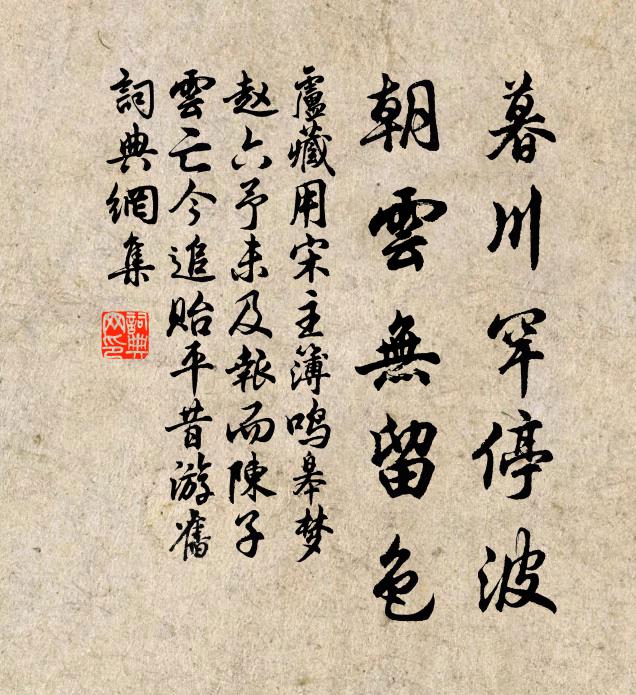 暮川罕停波
朝雲無留色
盧藏用宋主簿鳴皋梦
赵六予未及報而陳子
雲亡今追貽平昔游舊
詞典網集
詞典網印